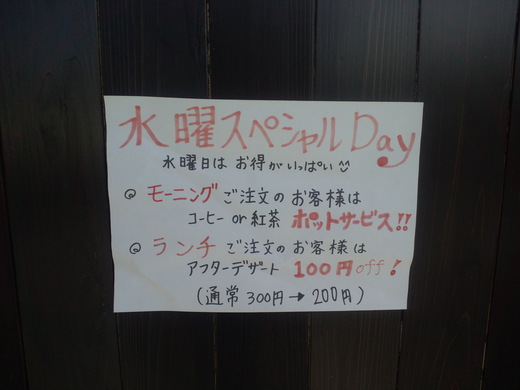 水曜スペシャルDay
水曜日は お得がいっぱい
◎ モーニング ご注文の お客様は
コーヒー or 紅茶 ポットサービス!!
◎ ランチ ご注文の お客様は
アフターデザート 100円off!
(通常 300円→200円)